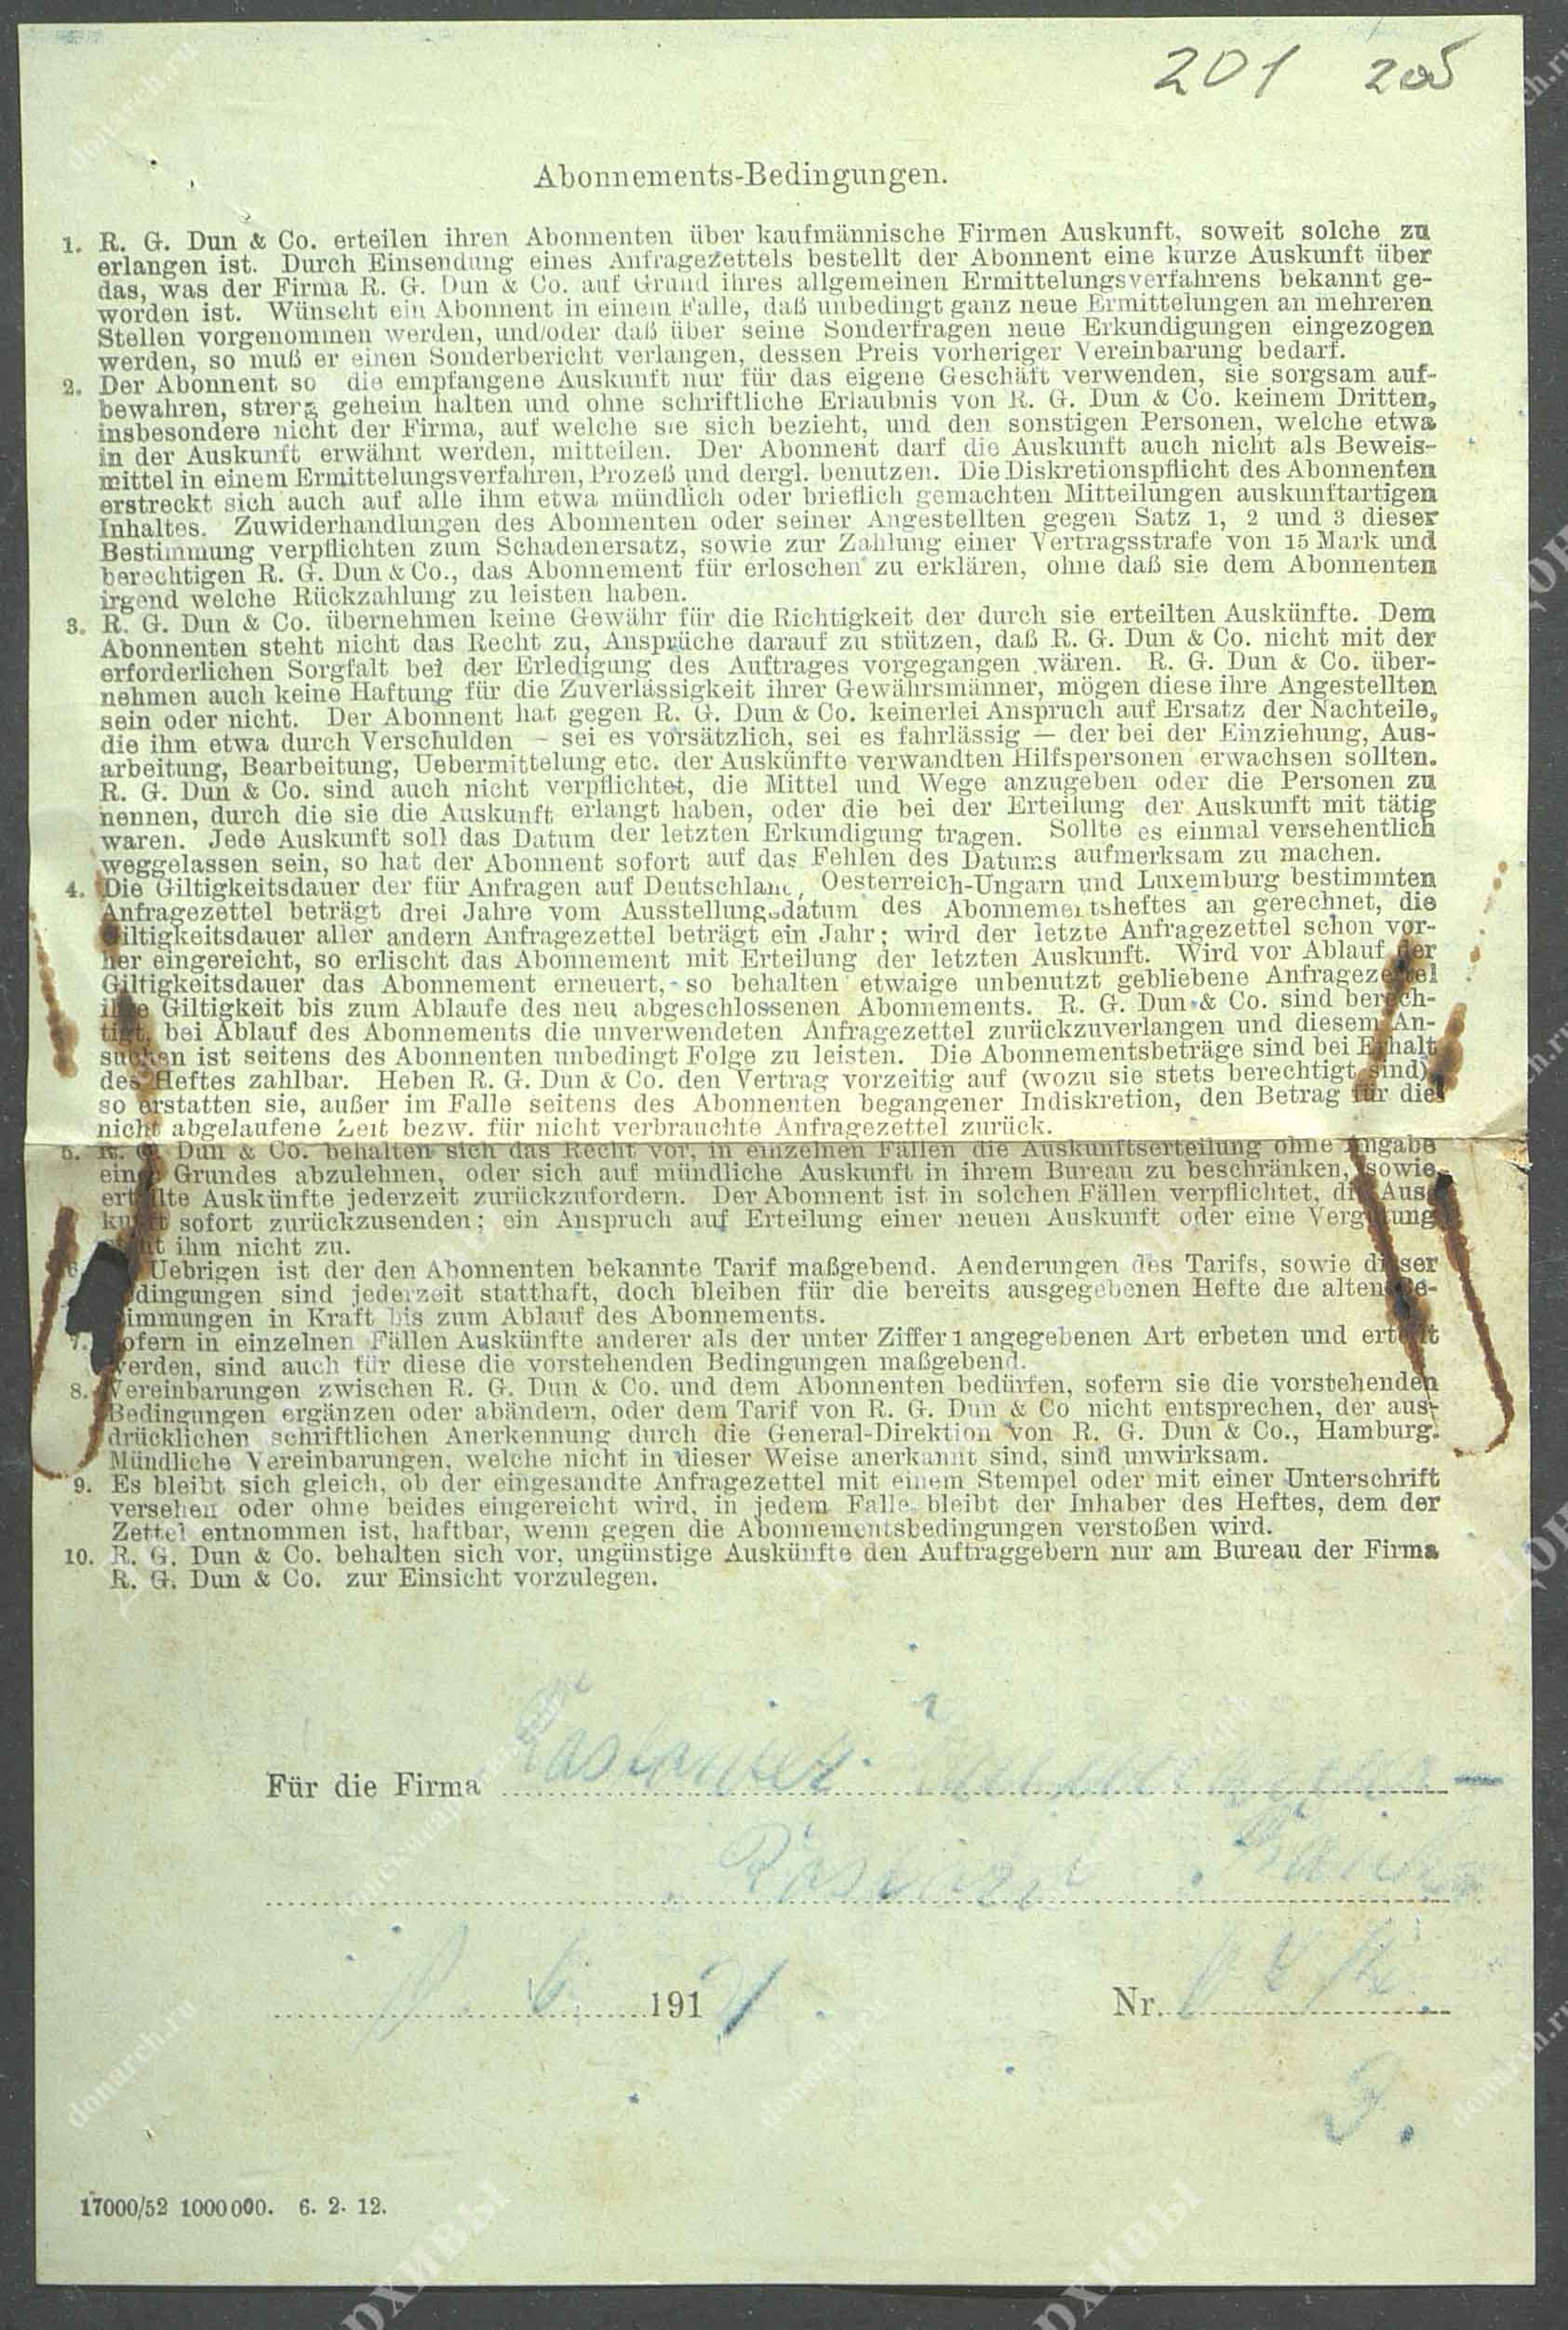 201 205
Abonnements-Bedingungen.
1. R. G. Dun & Co. erteilen ihren Abonnenten über kaufmännische Firmen Auskunft, soweit solche zu
erlangen ist. Durch Einsendung eines Anfragezettels bestellt der Abonnent eine kurze Auskunft über
das, was der Firma R. G. Dun & Co. auf Grund ihres allgemeinen Ermittelungsverfahrens bekannt ge-
worden ist. Wünscht ein Abonnent in einem Falle, daß unbedingt ganz neue Ermittelungen an mehreren
Stellen vorgenommen werden, und/oder daß über seine Sonderfragen neue Erkundigungen eingezogen
werden, so muß er einen Sonderbericht verlangen, dessen Preis vorheriger Vereinbarung bedarf.
2. Der Abonnent so die empfangene Auskunft nur für das eigene Geschäft verwenden, sie sorgsam auf-
bewahren, streng geheim halten und ohne schriftliche Erlaubnis von R. G. Dun & Co. keinem Dritten,
insbesondere nicht der Firma, auf welche sie sich bezieht, und den sonstigen Personen, welche etwa
in der Auskunft erwähnt werden, mitteilen. Der Abonnent darf die Auskunft auch nicht als Beweis-
mittel in einem Ermittelungsverfahren, Prozeß und dergl. benutzen. Die Diskretionspflicht des Abonnenten
erstreckt sich auch auf alle ihm etwa mündlich oder brieflich gemachten Mitteilungen auskunftartigen
Inhaltes. Zuwiderhandlungen des Abonnenten oder seiner Angestellten gegen Satz 1, 2 und 3 dieser
Bestimmung verpflichten zum Schadenersatz, sowie zur Zahlung einer Vertragsstrafe von 15 Mark und
berechtigen R. G. Dun & Co., das Abonnement für erloschen zu erklären, ohne daß sie dem Abonnenten
irgend welche Rückzahlung zu leisten haben.
3. R. G. Dun & Co. übernehmen keine Gewähr für die Richtigkeit der durch sie erteilten Auskünfte. Dem
Abonnenten steht nicht das Recht zu, Ansprüche darauf zu stützen, daß R. G. Dun & Co. nicht mit der
erforderlichen Sorgfalt bei der Erledigung des Auftrages vorgegangen wären. R. G. Dun & Co. über-
nehmen auch keine Haftung für die Zuverlässigkeit ihrer Gewährsmänner, mögen diese ihre Angestellten
sein oder nicht. Der Abonnent hat gegen R. G. Dun & Co. keinerlei Anspruch auf Ersatz der Nachteile,
die ihm etwa durch Verschulden – sei es vorsätzlich, sei es fahrlässig — der bei der Einziehung, Aus-
arbeitung, Bearbeitung, Uebermittelung etc. der Auskünfte verwandten Hilfspersonen erwachsen sollten.
R. G. Dun & Co. sind auch nicht verpflichtet, die Mittel und Wege anzugeben oder die Personen zu
nennen, durch die sie die Auskunft erlangt haben, oder die bei der Erteilung der Auskunft mit tätig
waren. Jede Auskunft soll das Datum der letzten Erkundigung tragen. Sollte es einmal versehentlich
weggelassen sein, so hat der Abonnent sofort auf das Fehlen des Datums aufmerksam zu machen.
4. Die Giltigkeitsdauer der für Anfragen auf Deutschland, Oesterreich-Ungarn und Luxemburg bestimmten
Anfragezettel beträgt drei Jahre vom Ausstellungsdatum des Abonnementsheftes an gerechnet, die
Giltigkeitsdauer aller andern Anfragezettel beträgt ein Jahr; wird der letzte Anfragezettel schon vor-
her eingereicht, so erlischt das Abonnement mit Erteilung der letzten Auskunft. Wird vor Ablauf der
Giltigkeitsdauer das Abonnement erneuert, so behalten etwaige unbenutzt gebliebene Anfragezettel
ihre Giltigkeit bis zum Ablaufe des neu abgeschlossenen Abonnements. R. G. Dun & Co. sind berech-
tigt, bei Ablauf des Abonnements die unverwendeten Anfragezettel zurückzuverlangen und diesem An-
suchen ist seitens des Abonnenten unbedingt Folge zu leisten. Die Abonnementsbeträge sind bei Erhalt
des Heftes zahlbar. Heben R. G. Dun & Co. den Vertrag vorzeitig auf (wozu sie stets berechtigt sind),
so erstatten sie, außer im Falle seitens des Abonnenten begangener Indiskretion, den Betrag für die
nicht abgelaufene Zeit bezw. für nicht verbrauchte Anfragezettel zurück.
5. R. G. Dun & Co. behalten sich das Recht vor, in einzelnen Fällen die Auskunftserteilung ohne Angabe
eines Grundes abzulehnen, oder sich auf mündliche Auskunft in ihrem Bureau zu beschränken, sowie
erteilte Auskünfte jederzeit zurückzufordern. Der Abonnent ist in solchen Fällen verpflichtet, die Aus-
kunft sofort zurückzusenden; ein Anspruch auf Erteilung einer neuen Auskunft oder eine Vergütung
steht ihm nicht zu.
6. Uebrigen ist der den Abonnenten bekannte Tarif maßgebend. Aenderungen des Tarifs, sowie dieser
Bedingungen sind jederzeit statthaft, doch bleiben für die bereits ausgegebenen Hefte die alten Be-
stimmungen in Kraft bis zum Ablauf des Abonnements.
7. Sofern in einzelnen Fällen Auskünfte anderer als der unter Ziffer 1 angegebenen Art erbeten und erteilt
werden, sind auch für diese die vorstehenden Bedingungen maßgebend.
8. Vereinbarungen zwischen R. G. Dun & Co. und dem Abonnenten bedürfen, sofern sie die vorstehenden
Bedingungen ergänzen oder abändern, oder dem Tarif von R. G. Dun & Co nicht entsprechen, der aus-
drücklichen schriftlichen Anerkennung durch die General-Direktion von R. G. Dun & Co., Hamburg.
Mündliche Vereinbarungen, welche nicht in dieser Weise anerkannt sind, sind unwirksam.
9. Es bleibt sich gleich, ob der eingesandte Anfragezettel mit einem Stempel oder mit einer Unterschrift
versehen oder ohne beides eingereicht wird, in jedem Falle bleibt der Inhaber des Heftes, dem der
Zettel entnommen ist, haftbar, wenn gegen die Abonnementsbedingungen verstoßen wird.
10. R. G. Dun & Co. behalten sich vor, ungünstige Auskünfte den Auftraggebern nur am Bureau der Firma
R. G. Dun & Co. zur Einsicht vorzulegen.
Für die Firma
191 Nr.
3.
17000/52 1000000. 6. 2. 12.